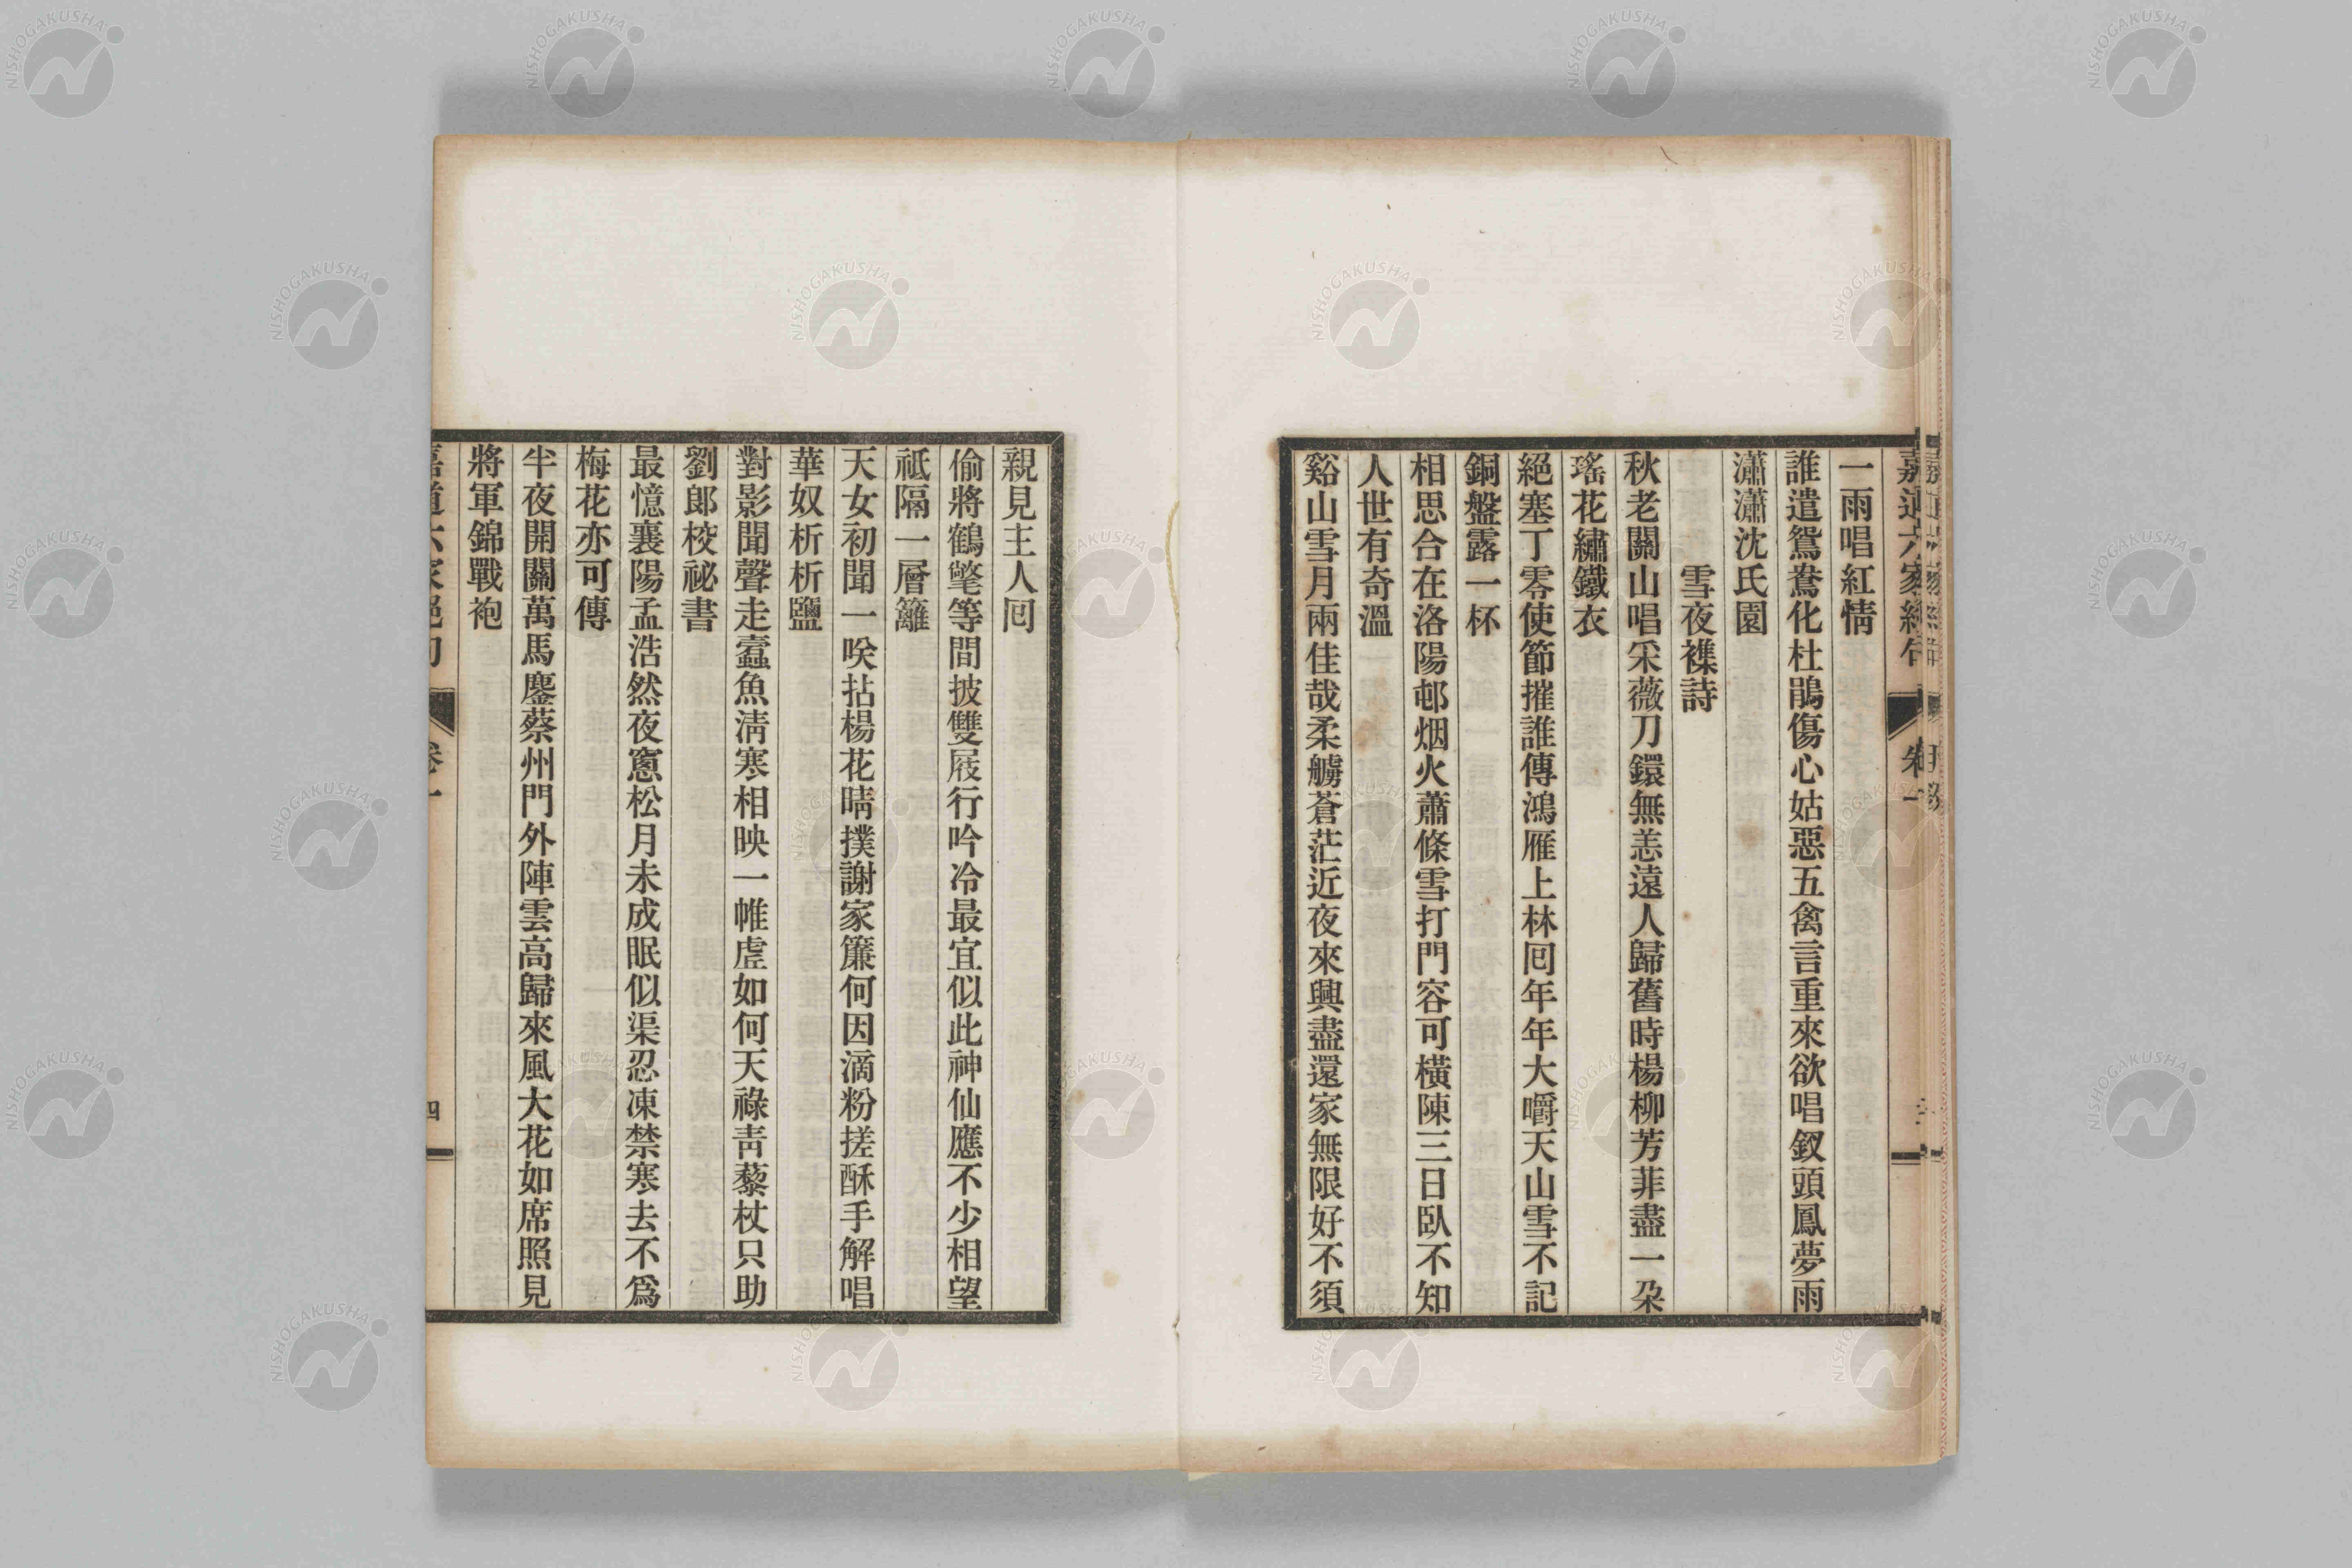 一雨唱紅情
誰遣鴛鴦化杜鵑傷心姑惡五禽言重來欲唱釵頭鳳夢雨
瀟瀟沈氏園
雪夜襍詩
秋老關山唱采薇刀鐶無恙遠人歸舊時楊柳芳菲盡一朶
瑤花繡鐵衣
絕塞丁零使節摧誰傳鴻雁上林回年年大嚼天山雪不記
銅盤露一杯
相思合在洛陽邨烟火蕭條雪打門容可橫陳三日臥不知
人世有奇溫
谿山雪月兩佳哉柔艣蒼茫近夜來興盡還家無限好不須
親見主人回
偷將鶴氅等閒披雙屐行吟冷最宜似此神仙應不少相望
祗隔一層籬
天女初聞一咲拈楊花晴撲謝家簾何因滴粉搓酥手解唱
華奴析析鹽
對影聞聲走蠹魚淸寒相映一帷虛如何天祿靑藜杖只助
劉郞校祕書
最憶襄陽孟浩然夜窻松月未成眠似渠忍凍禁寒去不爲
梅花亦可傳
半夜開關萬馬鏖蔡州門外陣雲高歸來風大花如席照見
將軍錦戰袍
卷一
四
NISHOGAKUSHA